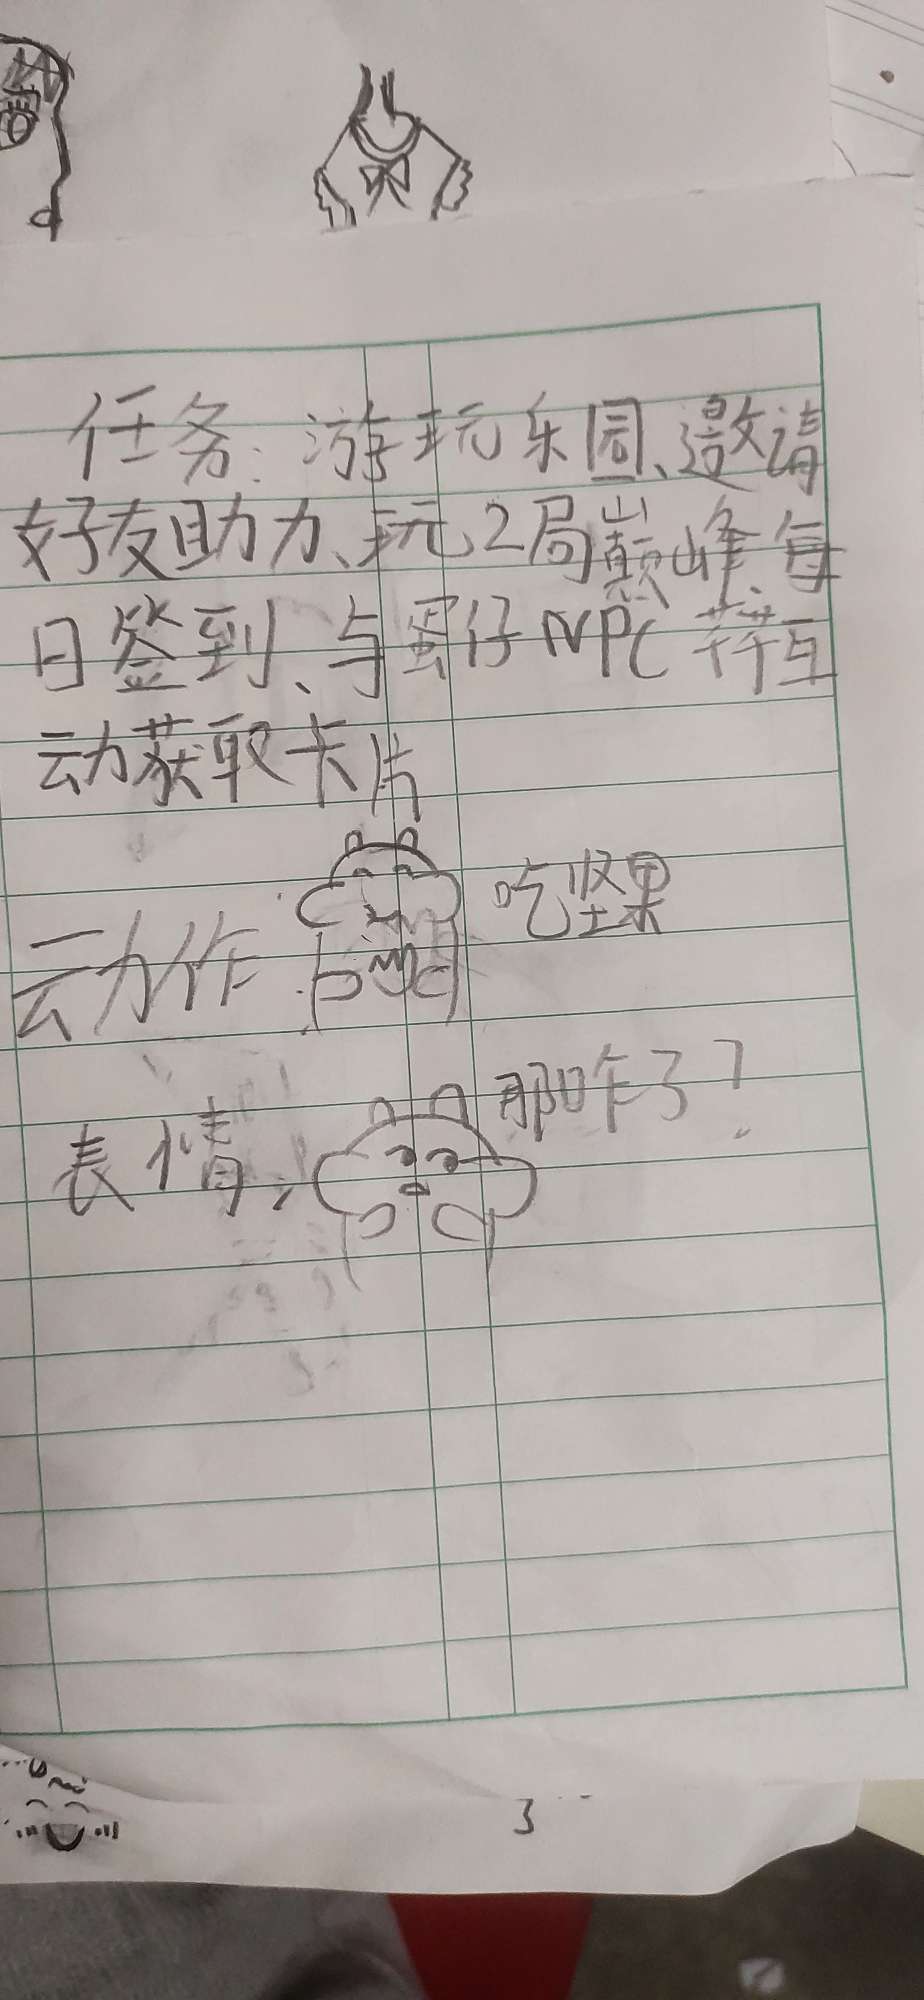 任务:游玩乐园、邀请
好友助力、玩2局巅峰、每
日签到、与蛋仔NPC等互
动获取卡片
动作 吃坚果
那咋了?
表情:
3